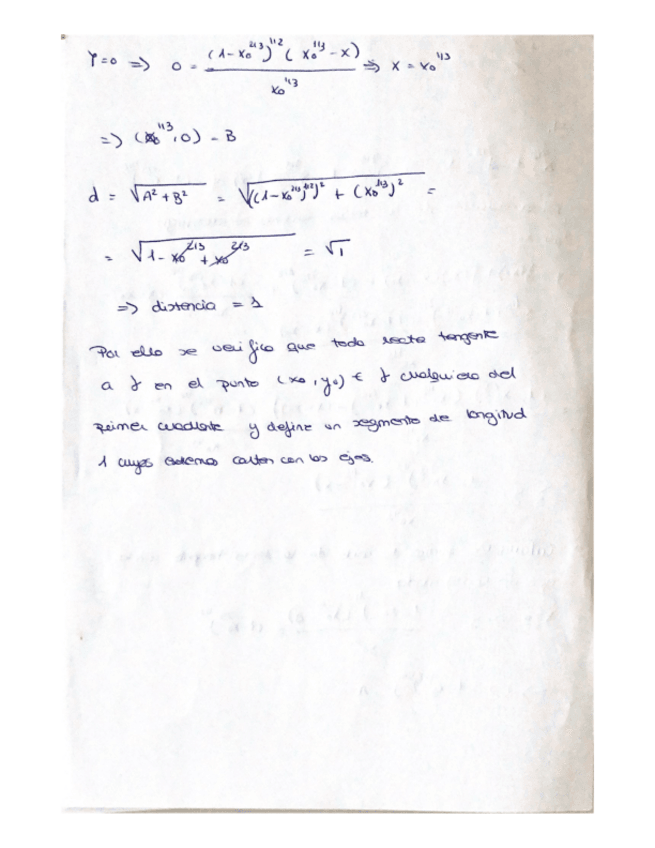 Y=0 => 0 = (1-x₀^2/3)^1/2 (x₀^1/3 - x) / x₀^1/3 => x = x₀^1/3
=> (x₀^1/3, 0) - B
d = √(A² + B²) = √(((1-x₀^2/3)^1/2)² + (x₀^1/3)²) =
= √(1 - x₀^2/3 + x₀^2/3) = √1
=> distancia = 1
Por ello se verifica que toda recta tangente
a f en el punto (x₀, y₀) ∈ f cualquiera del
primer cuadrante y define un segmento de longitud
1 cuyos extremos cortan con los ejes.